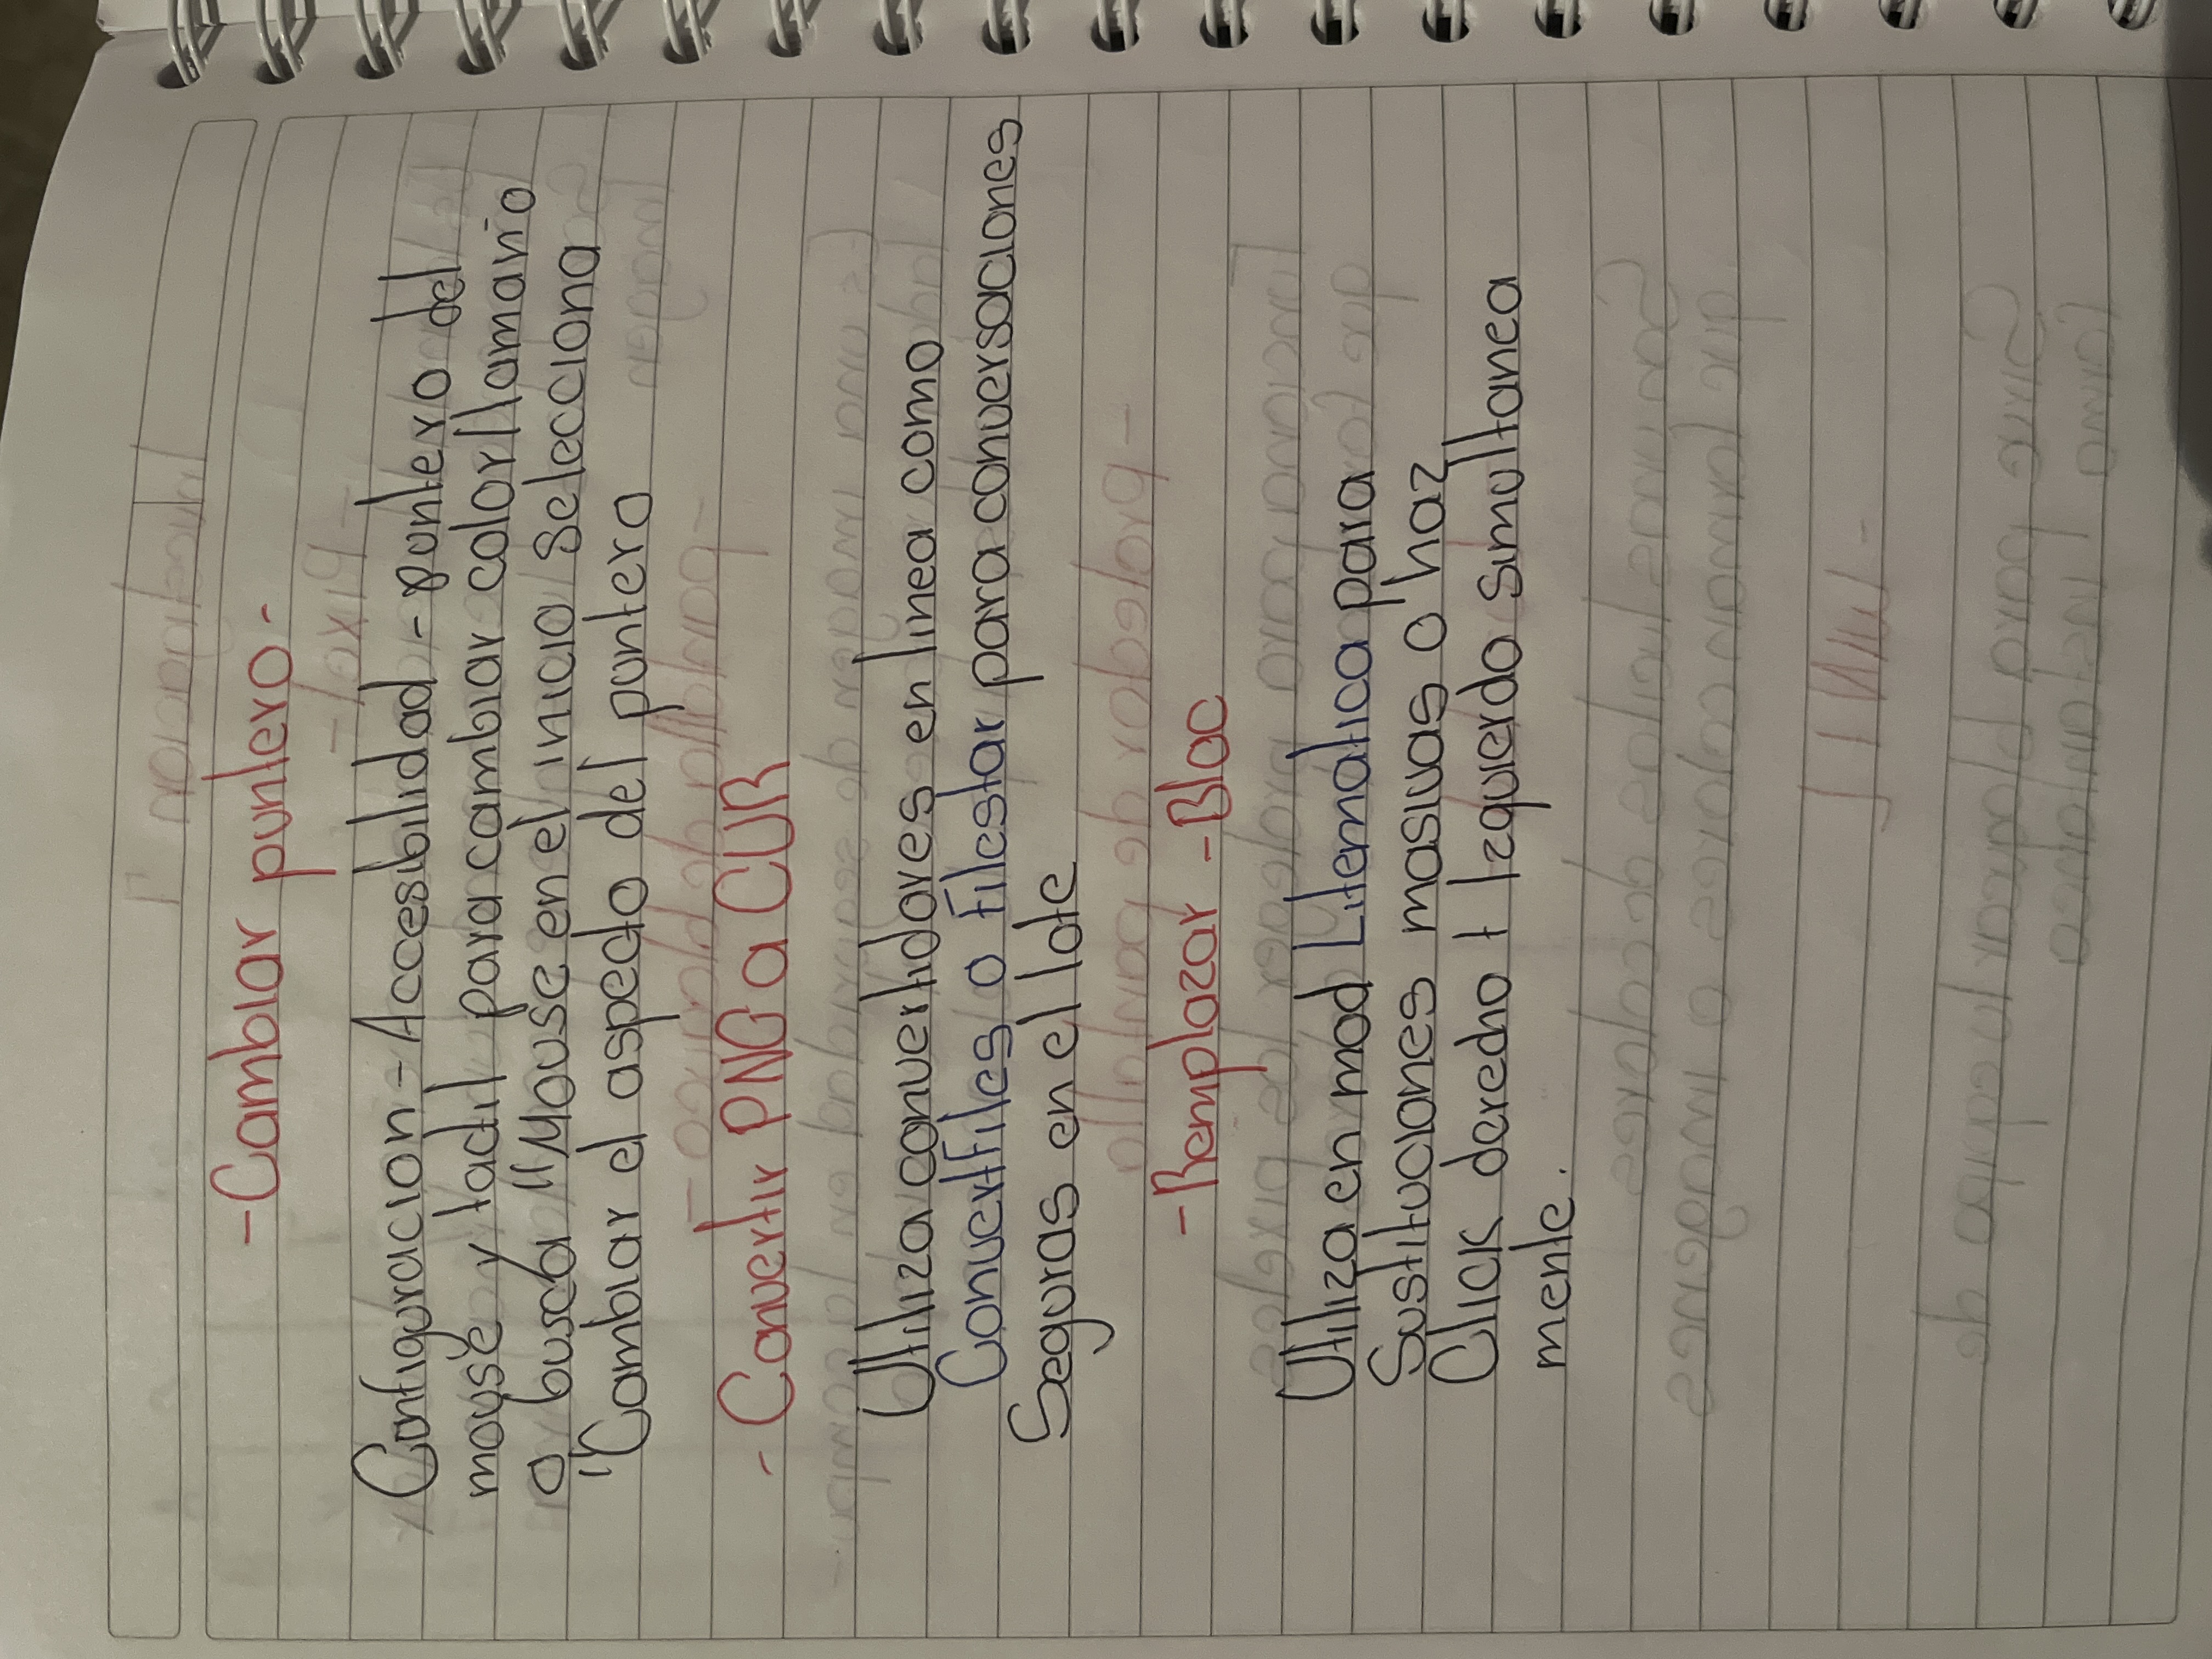 -Cambiar puntero-
Configuracion - Accesibilidad - puntero del
mouse y tactil para cambiar color/tamaño
o busca "Mouse en el inicio Selecciona
"Cambiar el aspecto del puntero
- Convertir PNG a CUR
Utiliza convertidores en linea como
ConvertFiles o Filestar para conversaciones
Seguras en el lote
-Remplazar -Bloc
Utiliza en mod Litematica para
Sustituciones masivas o haz
Click derecho + Izquierdo simultanea
mente.